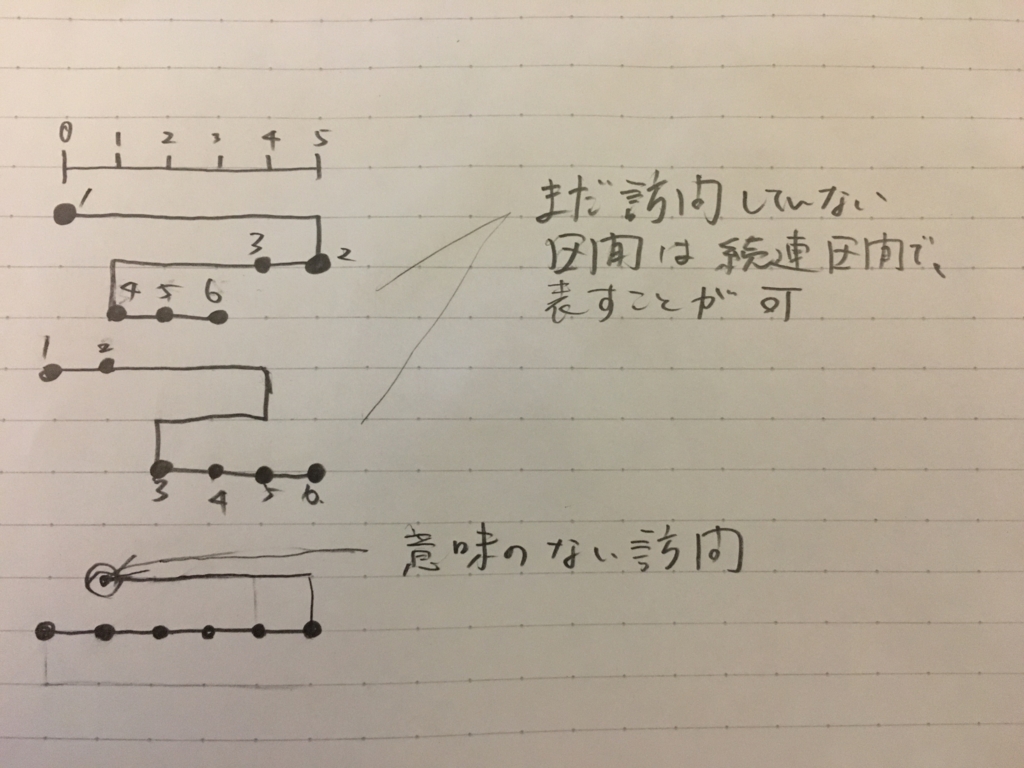 0 1 2 3 4 5
1
3 2
4 5 6
まだ訪問していない
区間は続連区間で、
表すことが可
1 2
3 4 5 6.
意味のない訪問